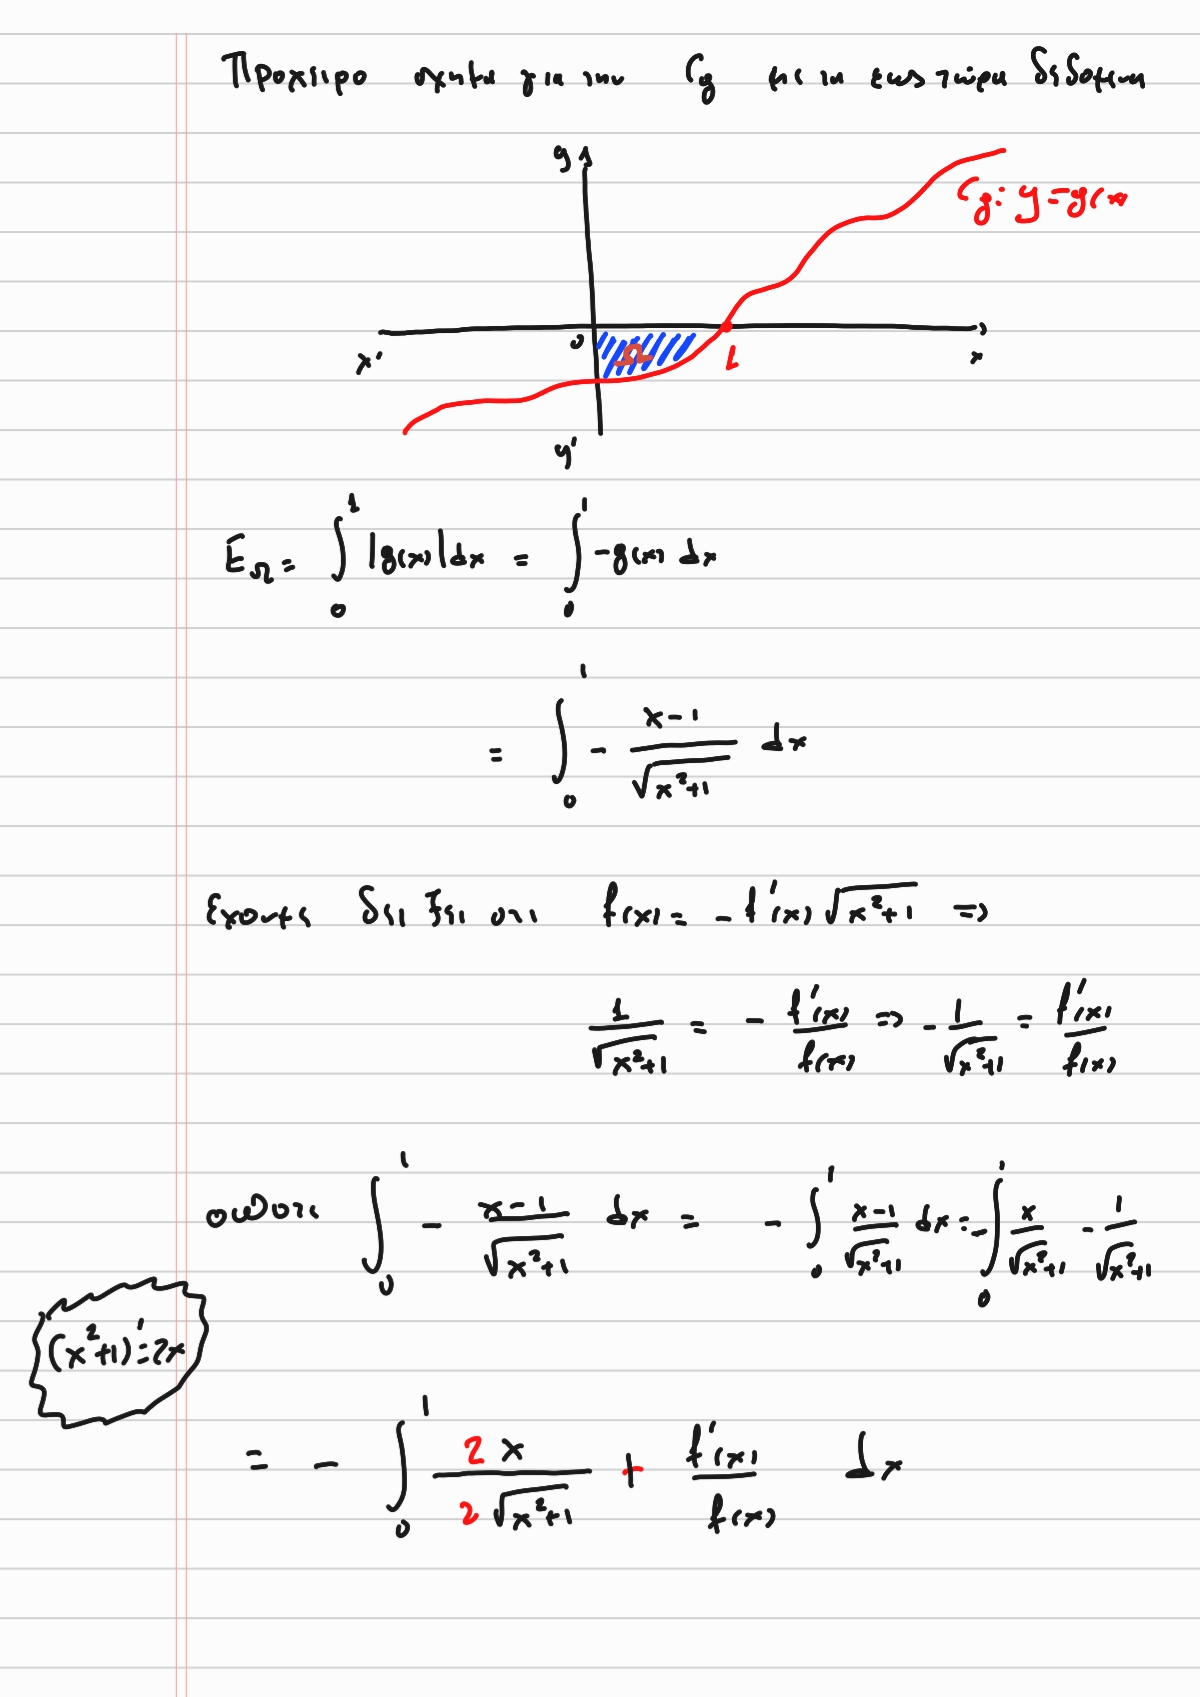 Προχειρο σχημα για την Cg με τα εως τωρα δεδομενα
y
Cg: y=g(x)
x' 0 Ω 1 x
y'
E_Ω = ∫_0^1 |g(x)|dx = ∫_0^1 -g(x) dx
= ∫_0^1 - (x-1)/√(x²+1) dx
Εχουμε δειξει οτι f(x) = -f'(x)√(x²+1) =>
1/√(x²+1) = - f'(x)/f(x) => - 1/√(x²+1) = f'(x)/f(x)
οποτε ∫_0^1 - (x-1)/√(x²+1) dx = - ∫_0^1 (x-1)/√(x²+1) dx = -∫_0^1 x/√(x²+1) - 1/√(x²+1)
(x²+1)'=2x
= - ∫_0^1 2x/(2√(x²+1)) + f'(x)/f(x) dx